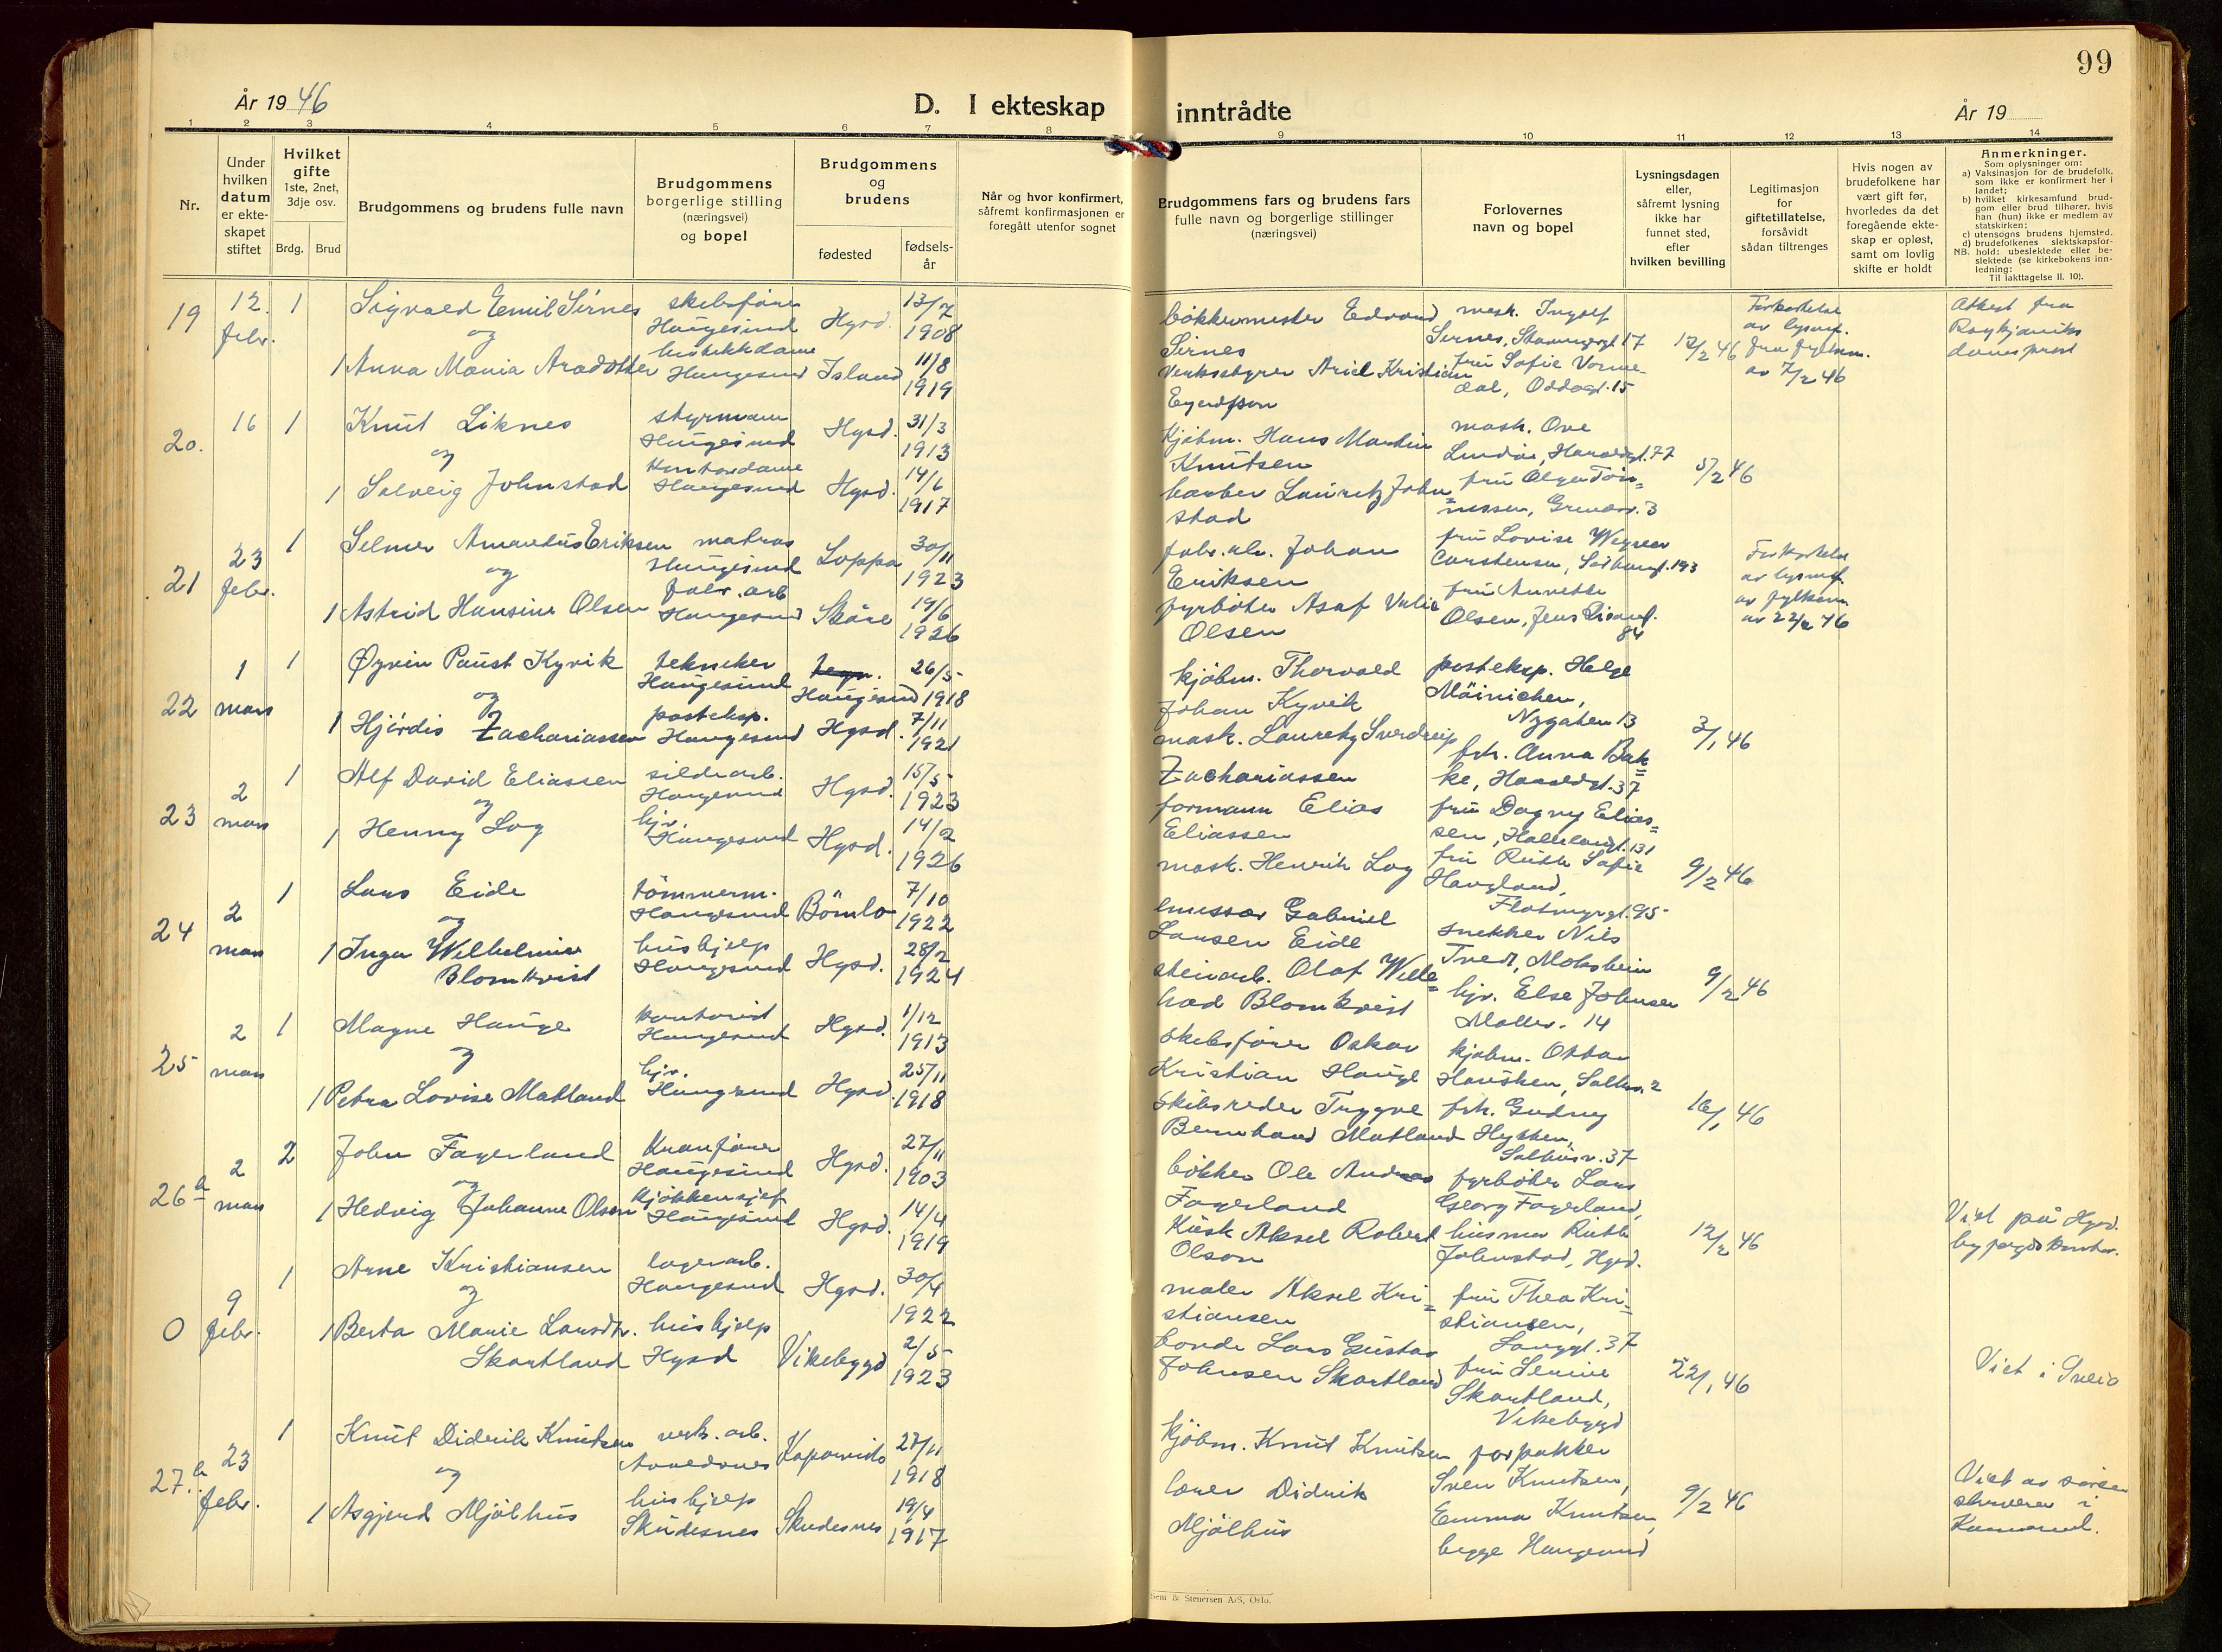 99
År 1946
D. I ekteskap inntrådte
År 19
1 2 3 4 5 6 7 8 9 10 11 12 13 14
Nr.
Under
hvilken
datum
er ekte-
skapet
stiftet
Hvilket
gifte
1ste, 2net,
3dje osv.
Brdg. Brud
Brudgommens og brudens fulle navn
Brudgommens
borgerlige stilling
(næringsvei)
og bopel
Brudgommens
og
brudens
fødested
fødsels-
år
Når og hvor konfirmert,
såfremt konfirmasjonen er
foregått utenfor sognet
Brudgommens fars og brudens fars
fulle navn og borgerlige stillinger
(næringsvei)
Forlovernes
navn og bopel
Lysningsdagen
eller,
såfremt lysning
ikke har
funnet sted,
efter
hvilken bevilling
Legitimasjon
for
giftetillatelse,
forsåvidt
sådan tiltrenges
Hvis nogen av
brudefolkene har
vært gift før,
hvorledes da det
foregående ekte-
skap er opløst,
samt om lovlig
skifte er holdt
Anmerkninger.
Som oplysninger om:
a) Vaksinasjon for de brudefolk,
som ikke er konfirmert her i
landet;
b) hvilket kirkesamfund brud-
gom eller brud tilhører, hvis
han (hun) ikke er medlem av
statskirken;
c) utensogns brudens hjemsted.
d) brudefolkenes slektskapsfor-
NB. hold: ubeslektede eller be-
slektede (se kirkebokens inn-
ledning:
Til iakttagelse II. 10).
19 12. febr. 1 Sigvald Emil Sirnes skibsfører Haugesund Hgsd. 13/7 1908
og
1 Anna Maria Aradotter Haugesund Island 11/8 1919
bøkkermester Edvard
Sirnes
Verksstyrer Ariel Kristian
mask. Ingolf
Sirnes, 17
fru Sofie Vorme-
dal, Oddagt. 15
12/2 46
Forkortelse
av lysn.
fra fylkesm.
av 7/2 46
Attest fra
Reykjaviks
domsprost
20. 16 1 Knut Liknes styrmann Haugesund Hgsd. 31/3 1913
og
1 Solveig Johnstad kontordame Haugesund Hgsd. 14/6 1917
Kjøbm. Hans Martin
Knutsen
barber Lauritz John=
stad
mask. Ove
Lindøe, Haraldgt. 77
fru Olga Tøn=
nessen, 3
5/2 46
21 23 febr. 1 Selmer Amandus Eriksen matros Haugesund Loppa 30/11 1923
og
1 Astrid Hansine Olsen fabr. arb Haugesund Skåre 19/6 1926
fabr. arb. Johan
Eriksen
fyrbøter Asaf
Olsen
fru Lovise
Carstensen, 193
fru Annette
Olsen, Jens
84
Forkortelse
av lysn.
av fylkesm.
av 22/2 46
22 1 mars 1 Øyvin Paust Kyvik tekniker Haugesund Haugesund 26/5 1918
og
1 Hjördis Zachariassen posteksp. Haugesund Hgsd. 7/11 1921
kjøbm. Thorvald
Johan Kyvik
mask. Lauritz Sverdrup
Zachariassen
posteksp. Helge
Mäinichen,
Nygaten 13
frk. Anna Bak=
ke, Haraldgt. 37
3/1 46
23 2 mars 1 Alf David Eliassen sildearb. Haugesund Hgsd. 15/5 1923
og
1 Henny Log hjv. Haugesund Hgsd. 14/2 1926
formann Elias
Eliassen
mask. Henrik Log
fru Dagny Elias=
sen, 131
fru Ruth Sofie
Haugland,
Flotmyrgt. 95
9/2 46
24 2 mars 1 Lars Eide tømmerm. Haugesund Bömlo 7/10 1922
og
1 Inga Wilhelmine
Blomkvist hushjelp Haugesund Hgsd. 28/2 1924
emissær Gabriel
Larsen Eide
steinarb. Olaf Wille=
had Blomkvist
snekker Nils
Tvedt, Moksheim
hjv. Else Johnsen
Møllev. 14
9/2 46
25 2 mars 1 Magne Hauge kontorist Haugesund Hgsd. 1/12 1913
og
1 Petra Lovise Matland hjv. Haugesund Hgsd. 25/11 1918
skibsfører Oskar
Kristian Hauge
Skibsreder Tryggve
Bernhard Matland
kjøbm. Ottar
Haukken, Salhusv. 2
frk. Gudny
Hytten,
Salhusv. 37
16/1 46
26 a 2 mars 2 John Fagerland Kranfører Haugesund Hgsd. 27/11 1903
og
1 Hedvig Johanne Olsen kjøkkensjef Haugesund Hgsd. 14/4 1919
bøkker Ole Andreas
Fagerland
Kusk Aksel Robert
Olson
fyrbøter Lars
Georg Fagerland,
husmor Ruth
Johnstad, Hgsd.
12/2 46
Viet på Hgsd.
byfogdkontor.
0 9 febr. 1 Arne Kristiansen lagerarb. Haugesund Hgsd. 30/4 1922
og
1 Berta Marie Larsdtr.
Skartland hushjelp Hgsd Vikebygd 2/5 1923
maler Aksel Kri=
stiansen
bonde Lars Gustav
Johnsen Skartland
fru Thea Kri=
stiansen,
Langgt. 37
fru Lenine
Skartland,
Vikebygd
22/1 46
Viet i Sveio
27. b 23 febr. 1 Knut Didrik Knutsen verk. arb. Kopervik 27/11 1918
og
1 Asgjerd Mjölhus hushjelp Skudesnes Skudesnes 19/4 1917
kjøbm. Knut Knutsen
lærer Didrik
Mjölhus
forpakter
Sven Knutsen,
Emma Knutsen,
begge Haugesund
9/2 46
Viet av soren-
skriveren i
Karmsund.
Sem & Stenersen A/S, Oslo.